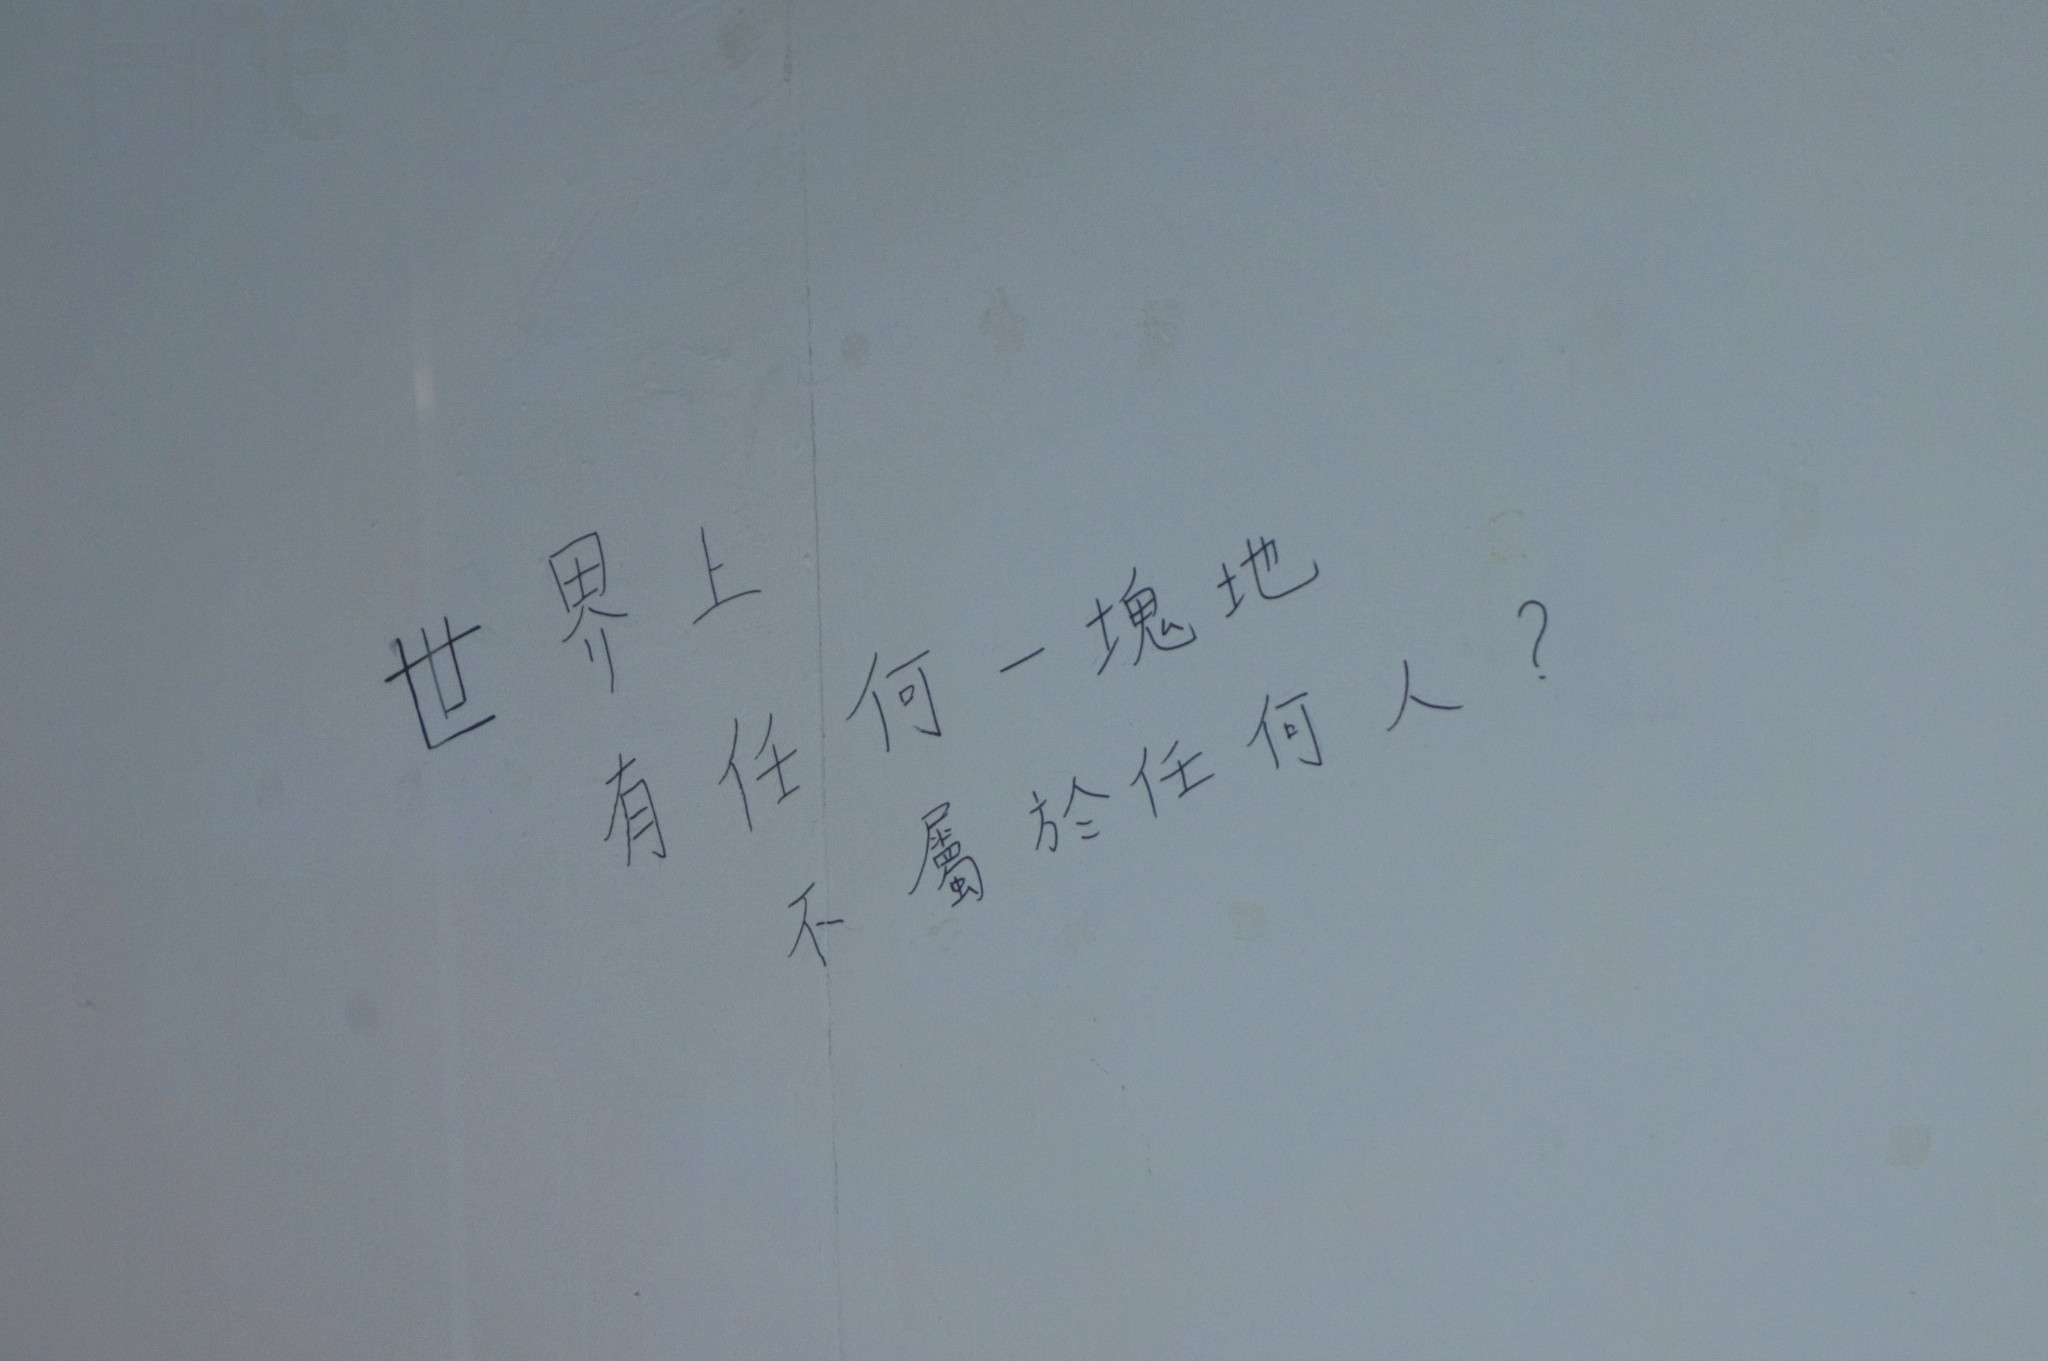 世界上
有任何一塊地
不屬於任何人？